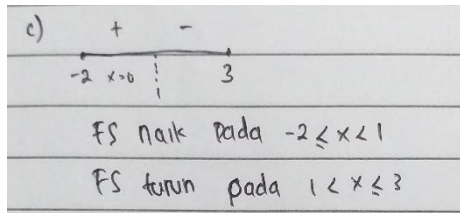 c) + -
-2 x=0 1 3
FS naik pada -2 ≤ x < 1
FS turun pada 1 < x ≤ 3